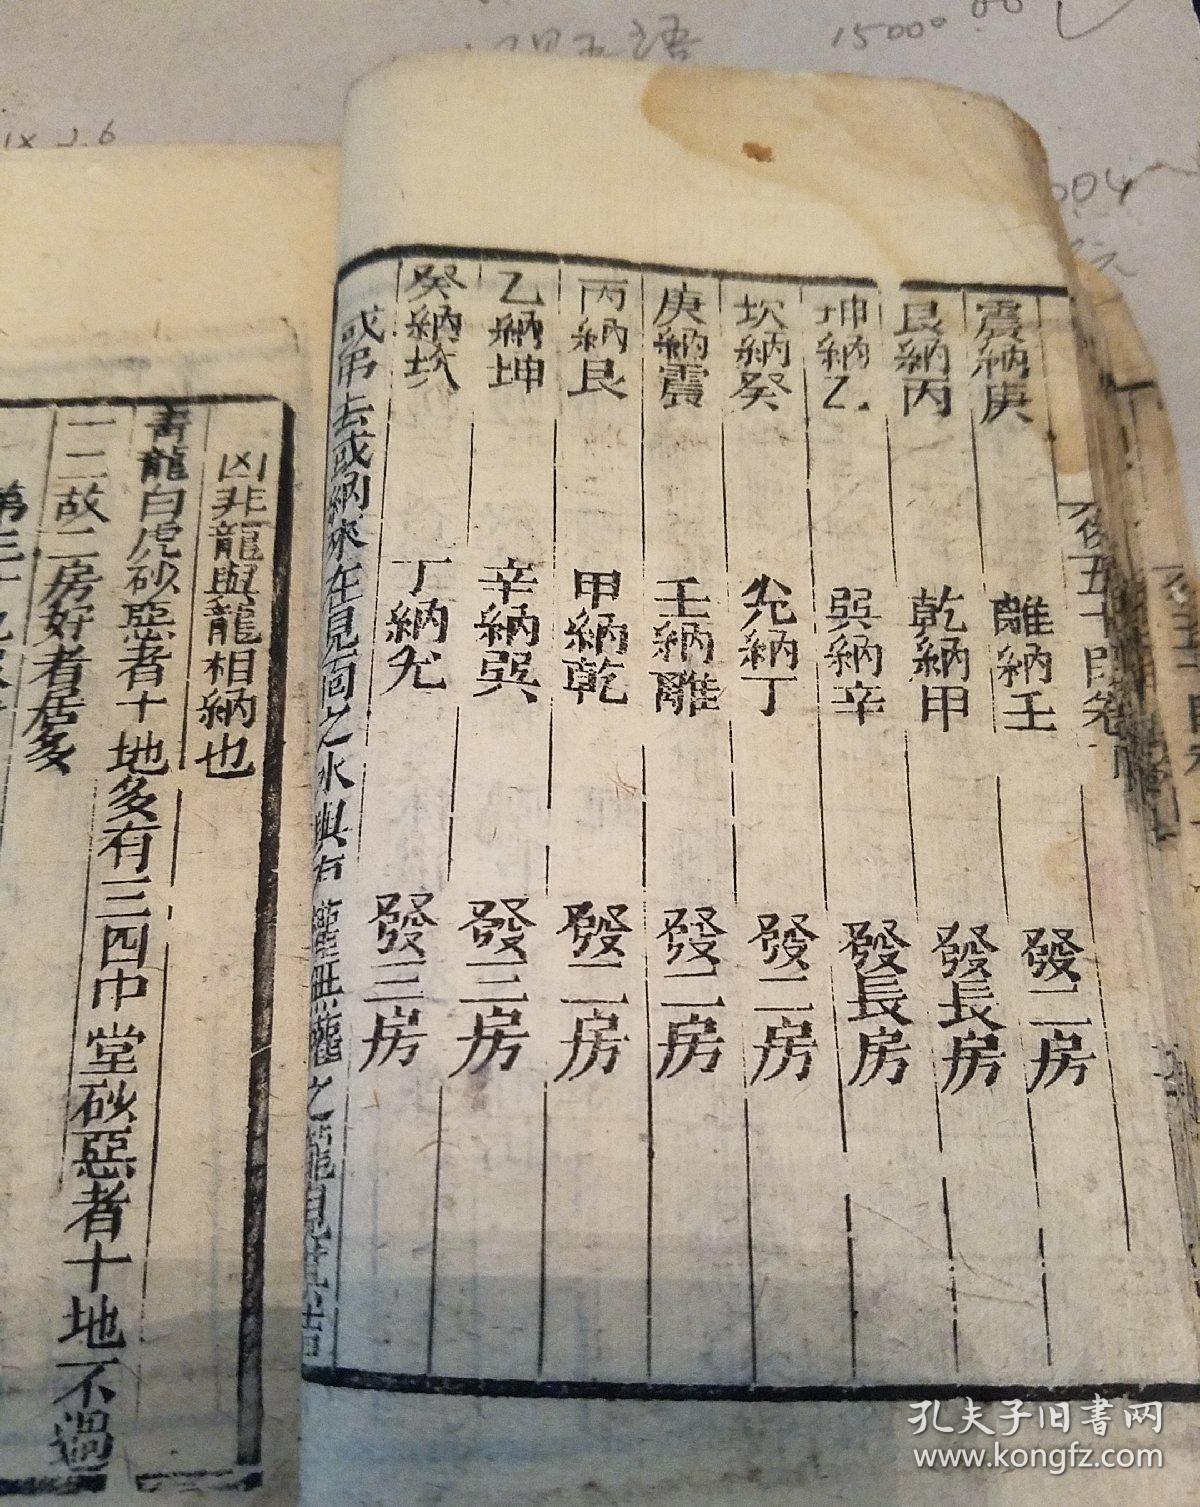 震納庚 離納壬 發二房
艮納丙 乾納甲 發長房
坤納乙 巽納辛 發長房
坎納癸 兊納丁 發二房
庚納震 壬納離 發二房
丙納艮 甲納乾 發二房
乙納坤 辛納巽 發三房
癸納坎 丁納兊 發三房
或吊去或納來在見面之水與有權無權之龍見其吉
凶非龍與龍相納也
青龍白虎砂惡者十地多有三四中堂砂惡者十地不過
一二故二房好者居多
孔夫子旧書网
www.kongfz.com
15000.00